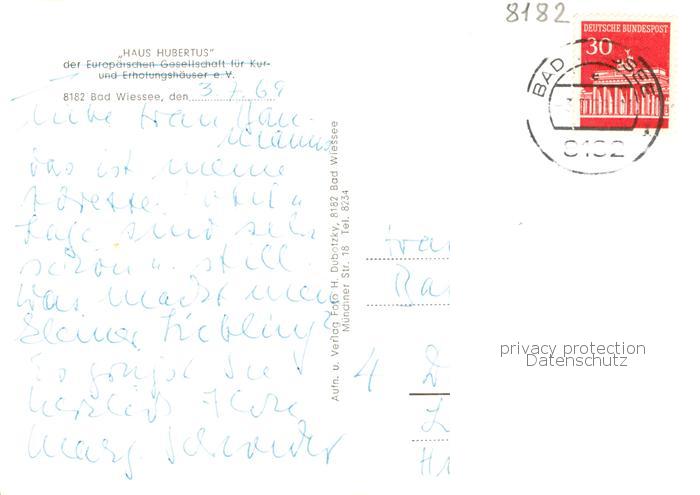 8182
DEUTSCHE BUNDESPOST
30
BAD
SEE
8182
„HAUS HUBERTUS"
der Europäischen Gesellschaft für Kur-
und Erholungshäuser e. V.
8182 Bad Wiessee, den 3.7.69
Liebe Frau
das ist meine
Adresse! Hotel u
Lage sind sehr
schön u. still.
Was macht mein
kleiner Liebling?
Es grüßt Sie
herzlich Ihre
Marg. Schroeder
Aufn. u. Verlag Foto H. Dubotzky, 8182 Bad Wiessee
Münchner Str. 18 Tel. 8234
Frau
4 D
privacy protection
Datenschutz